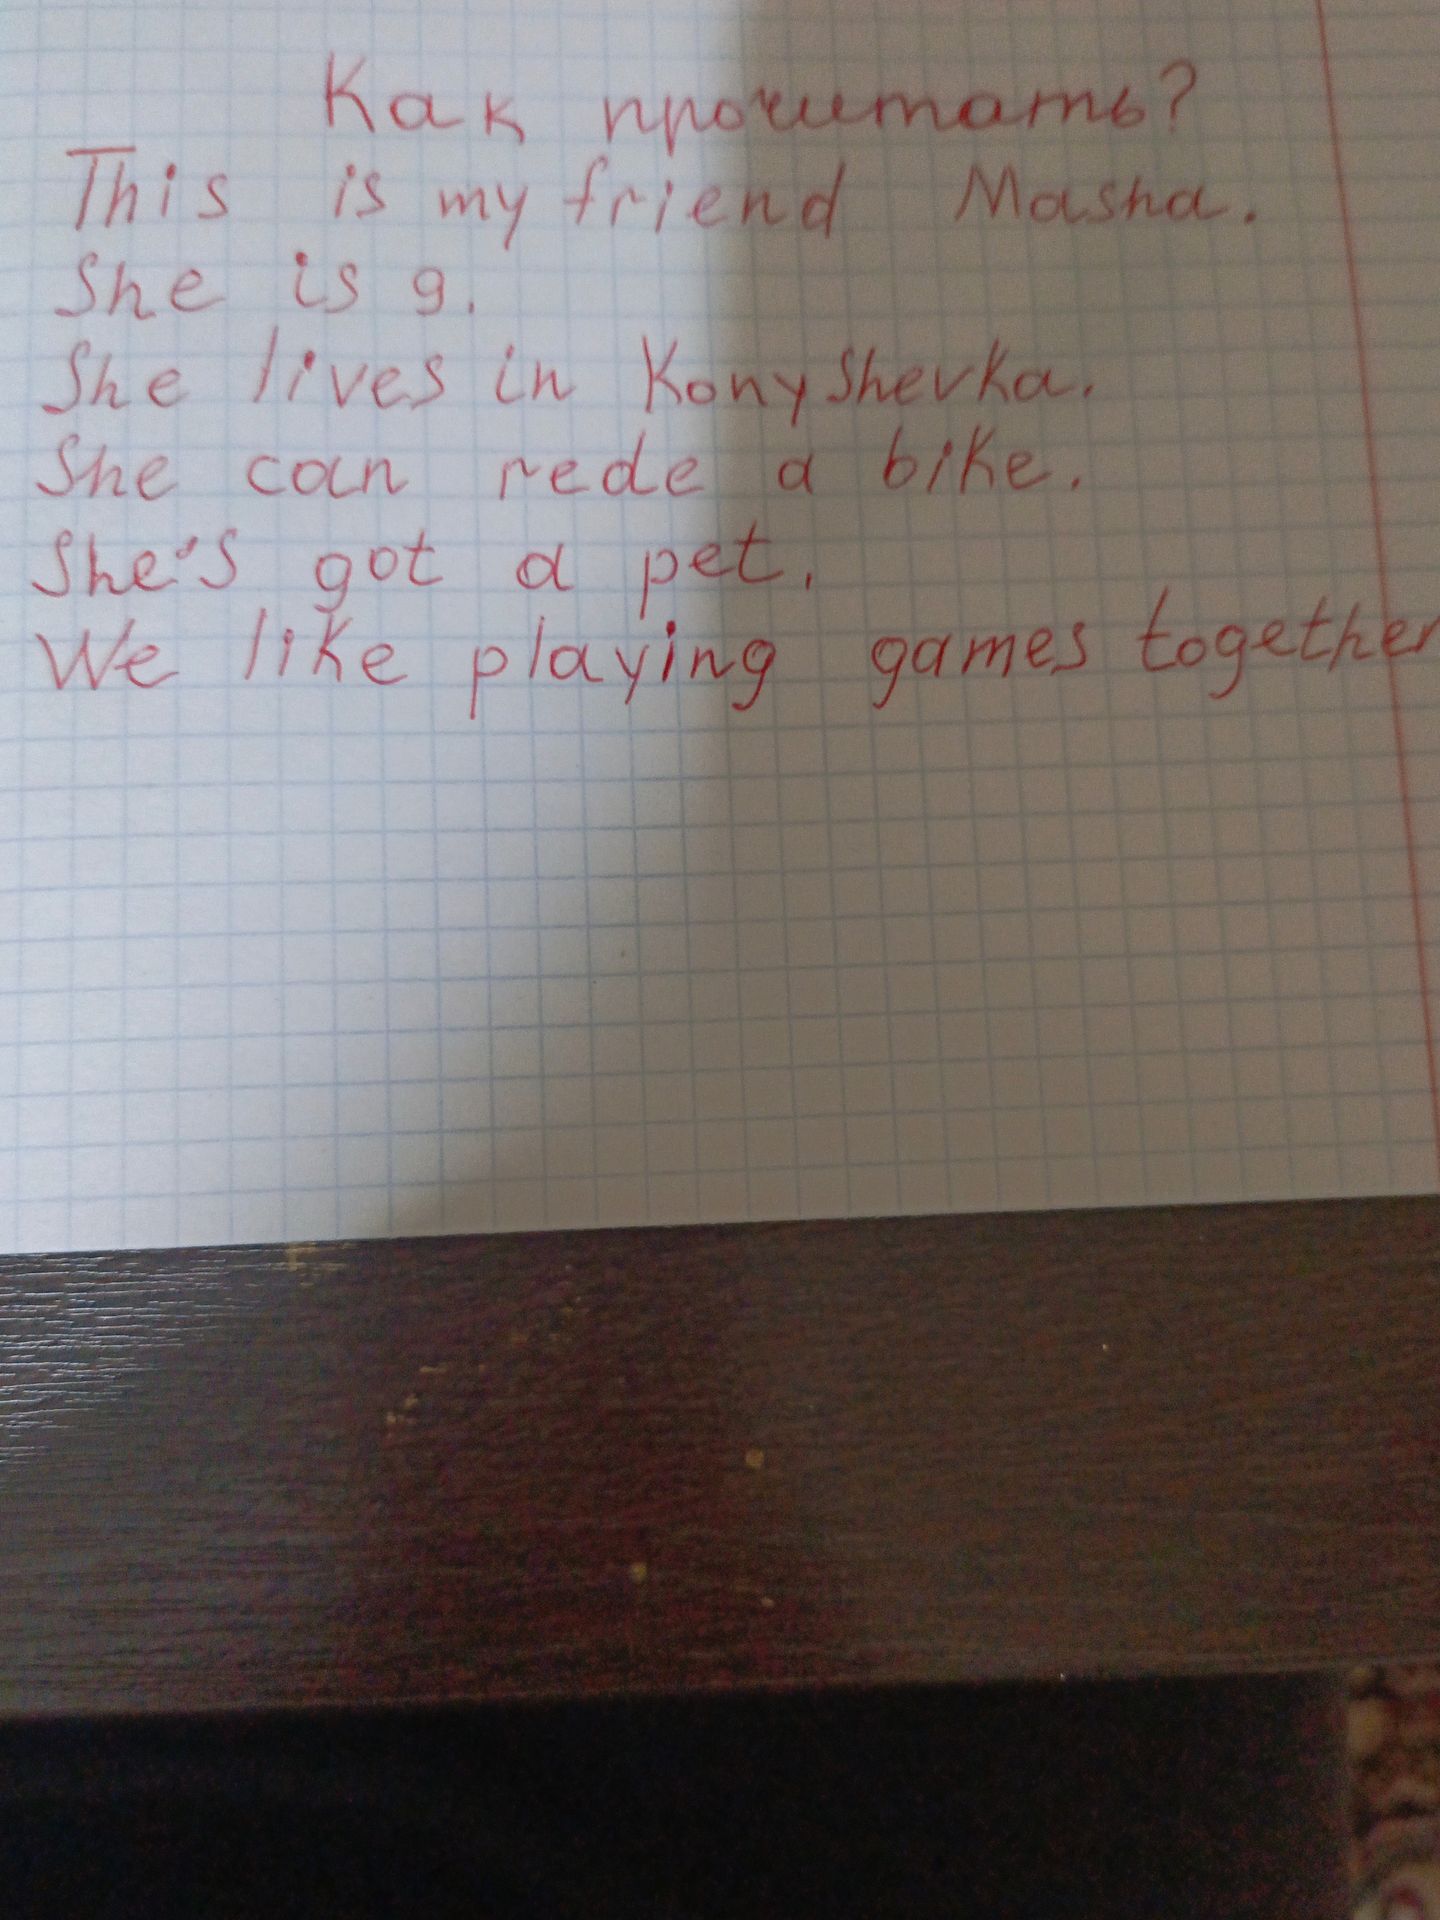 Как прочитать?
This is my friend Masha.
She is 9.
She lives in Konyshevka.
She can rede a bike.
She's got a pet.
We like playing games together